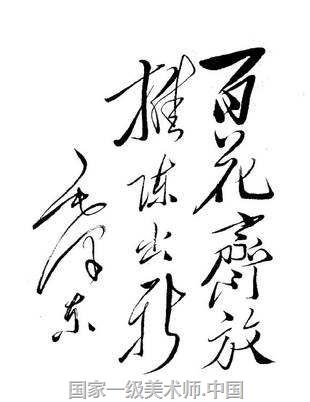 百花齊放
推陈出新
毛泽东
国家一级美术师.中国